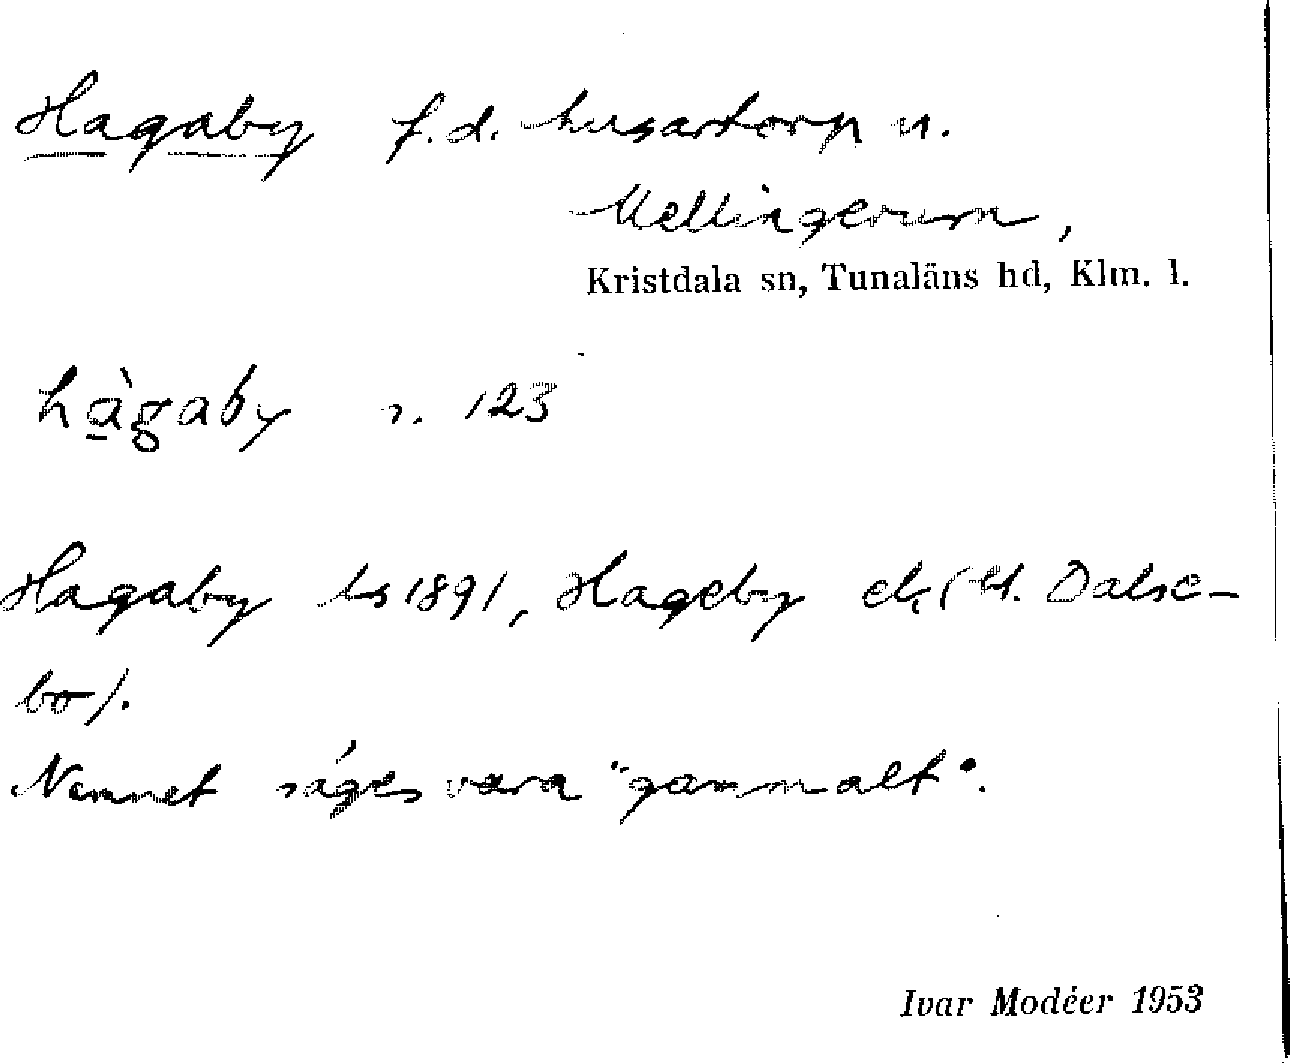 Hagaby f.d. husartorp u.
Mellingerum,
Kristdala sn, Tunaläns hd, Klm. l.
hàgaby s. 123
Hagaby ls 1891, Hageby ek (bl. Dalse-
bo).
Namnet säges vara "gammalt".
Ivar Modéer 1953